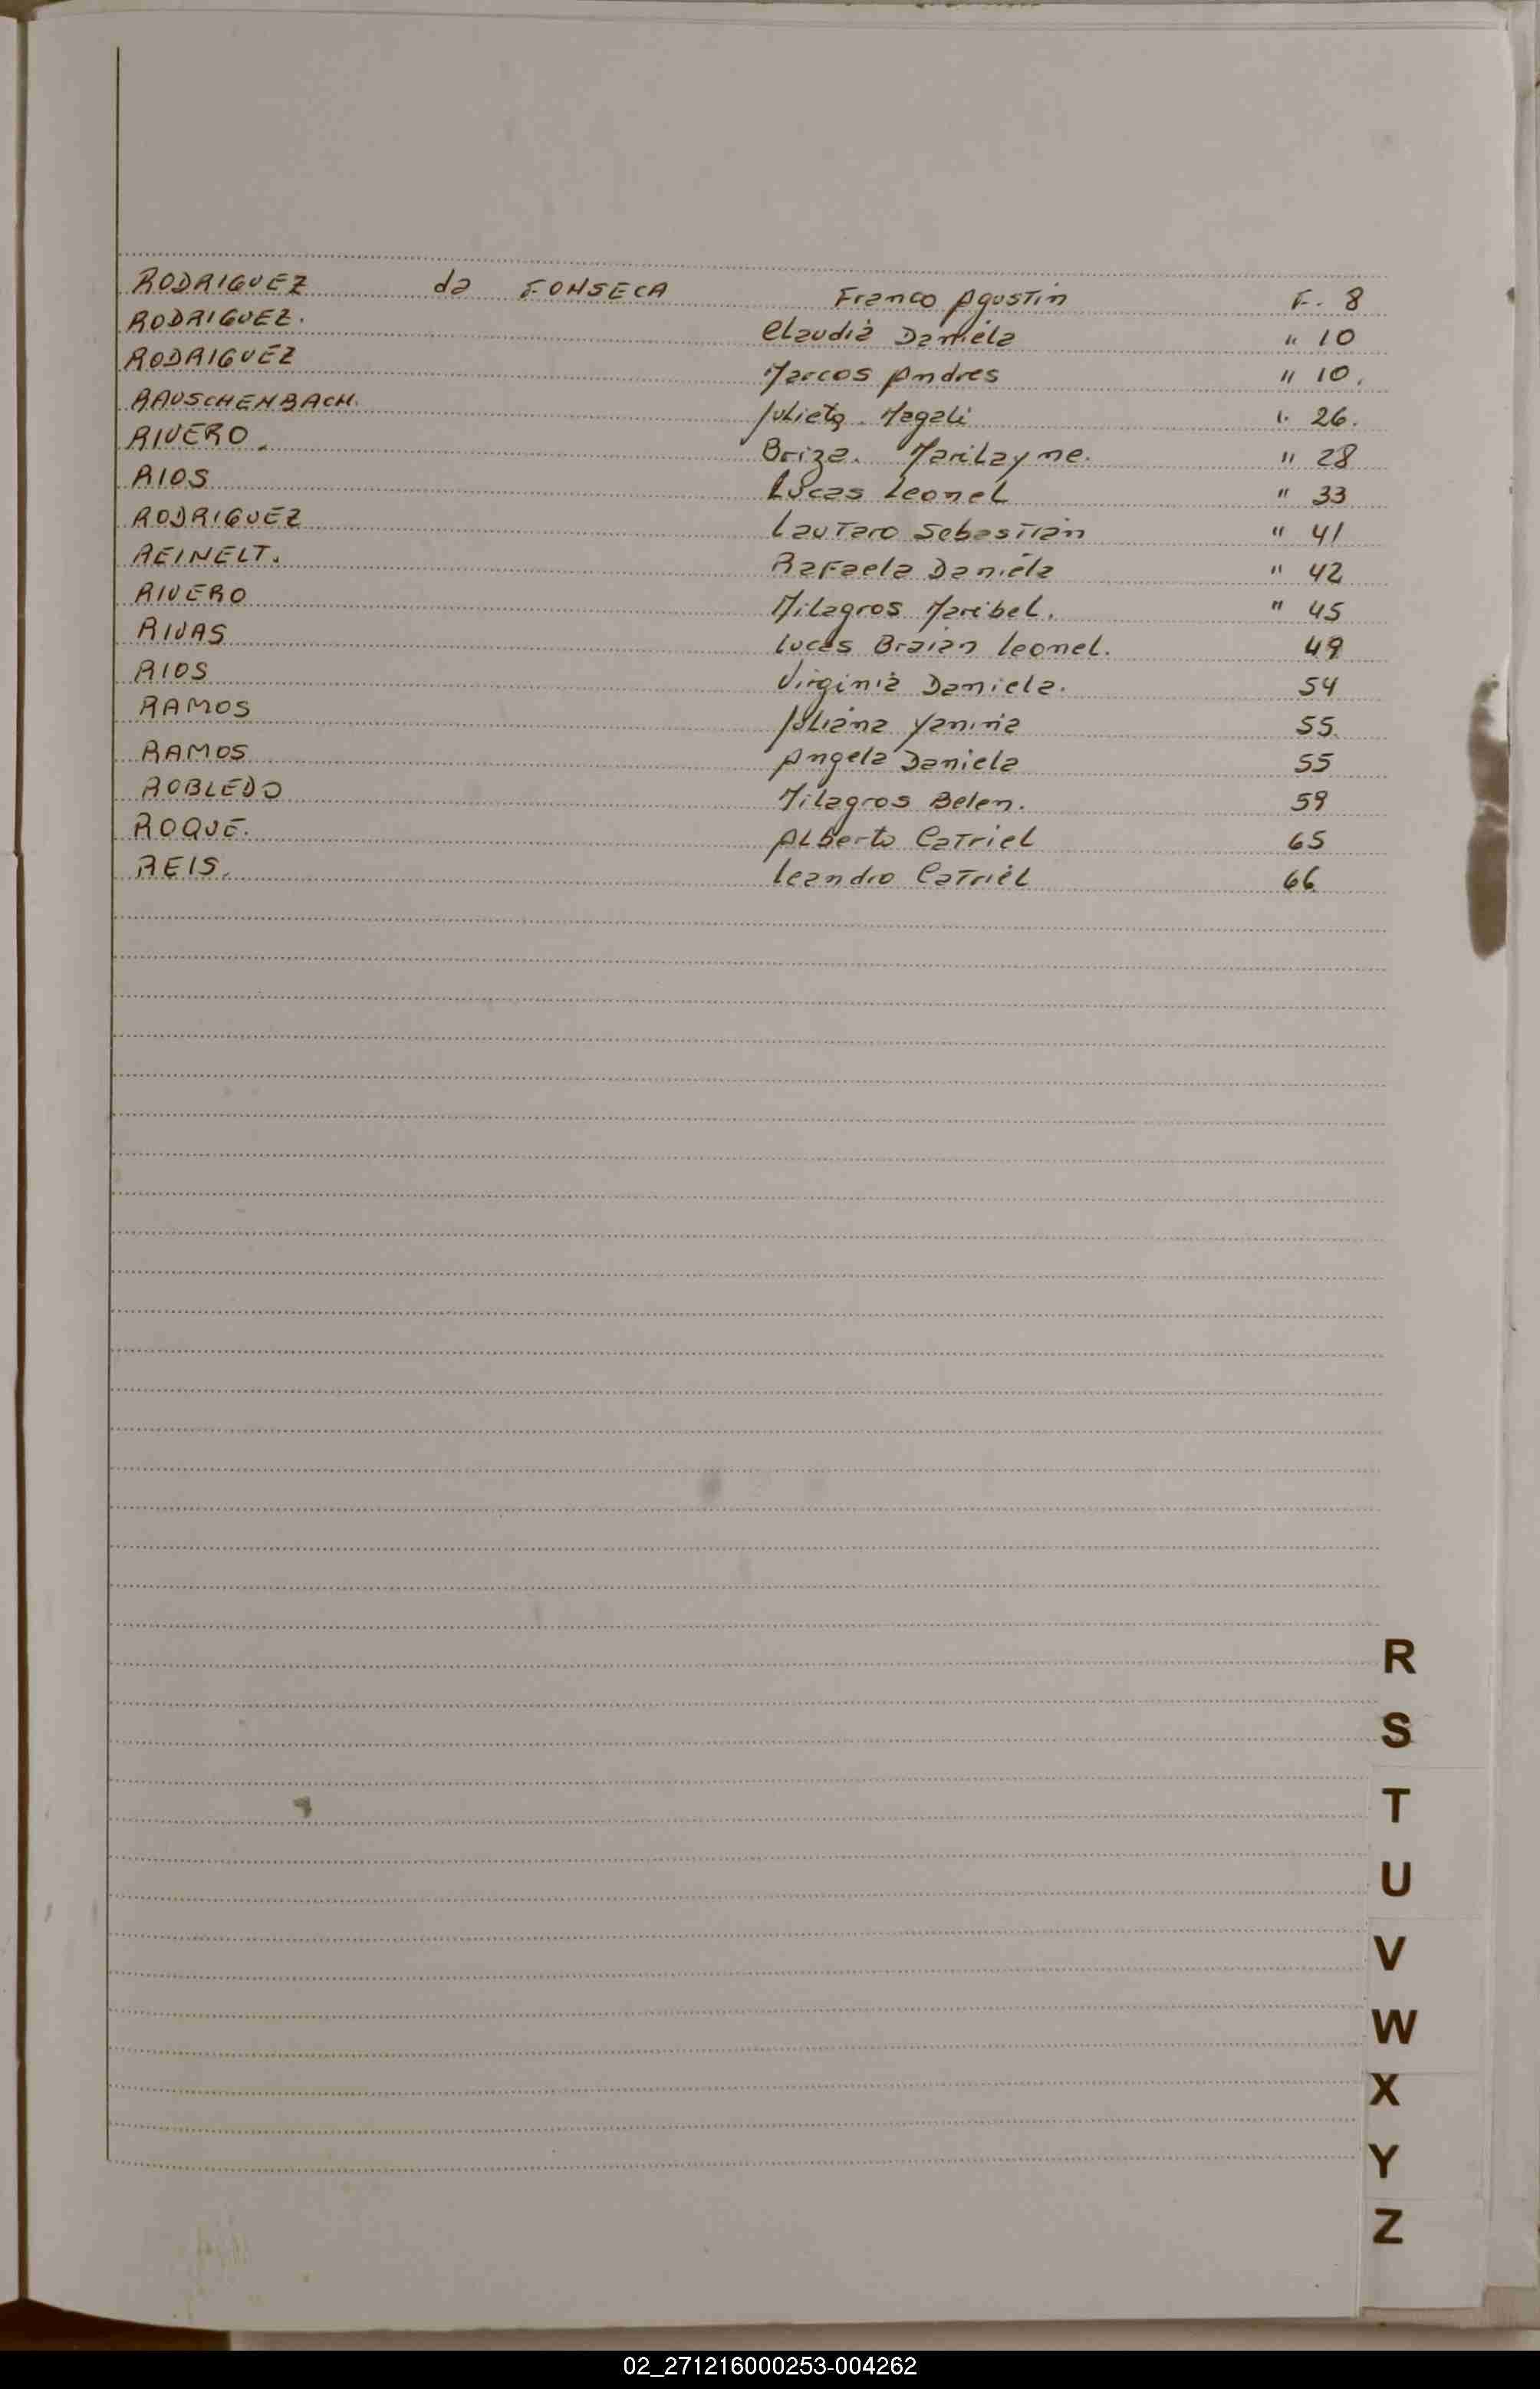 RODRIGUEZ da FONSECA Franco Agustin F. 8
RODRIGUEZ. Claudia Daniela " 10
RODRIGUEZ Marcos Andres " 10.
RAUSCHENBACH. Julieta. Magali " 26.
RIVERO. Briza. Marilayne. " 28
RIOS Lucas Leonel " 33
RODRIGUEZ Lautaro Sebastian " 41
REINELT. Rafaela Daniela " 42
RIVERO Milagros Maribel. " 45
RIVAS Lucas Braian Leonel. 49
RIOS Virginia Daniela. 54
RAMOS Juliana Yanina 55.
RAMOS Angela Daniela 55
ROBLEDO Milagros Belen. 59
ROQUE. Alberto Catriel 65
REIS. Leandro Catriel 66
R
S
T
U
V
W
X
Y
Z
02_271216000253-004262